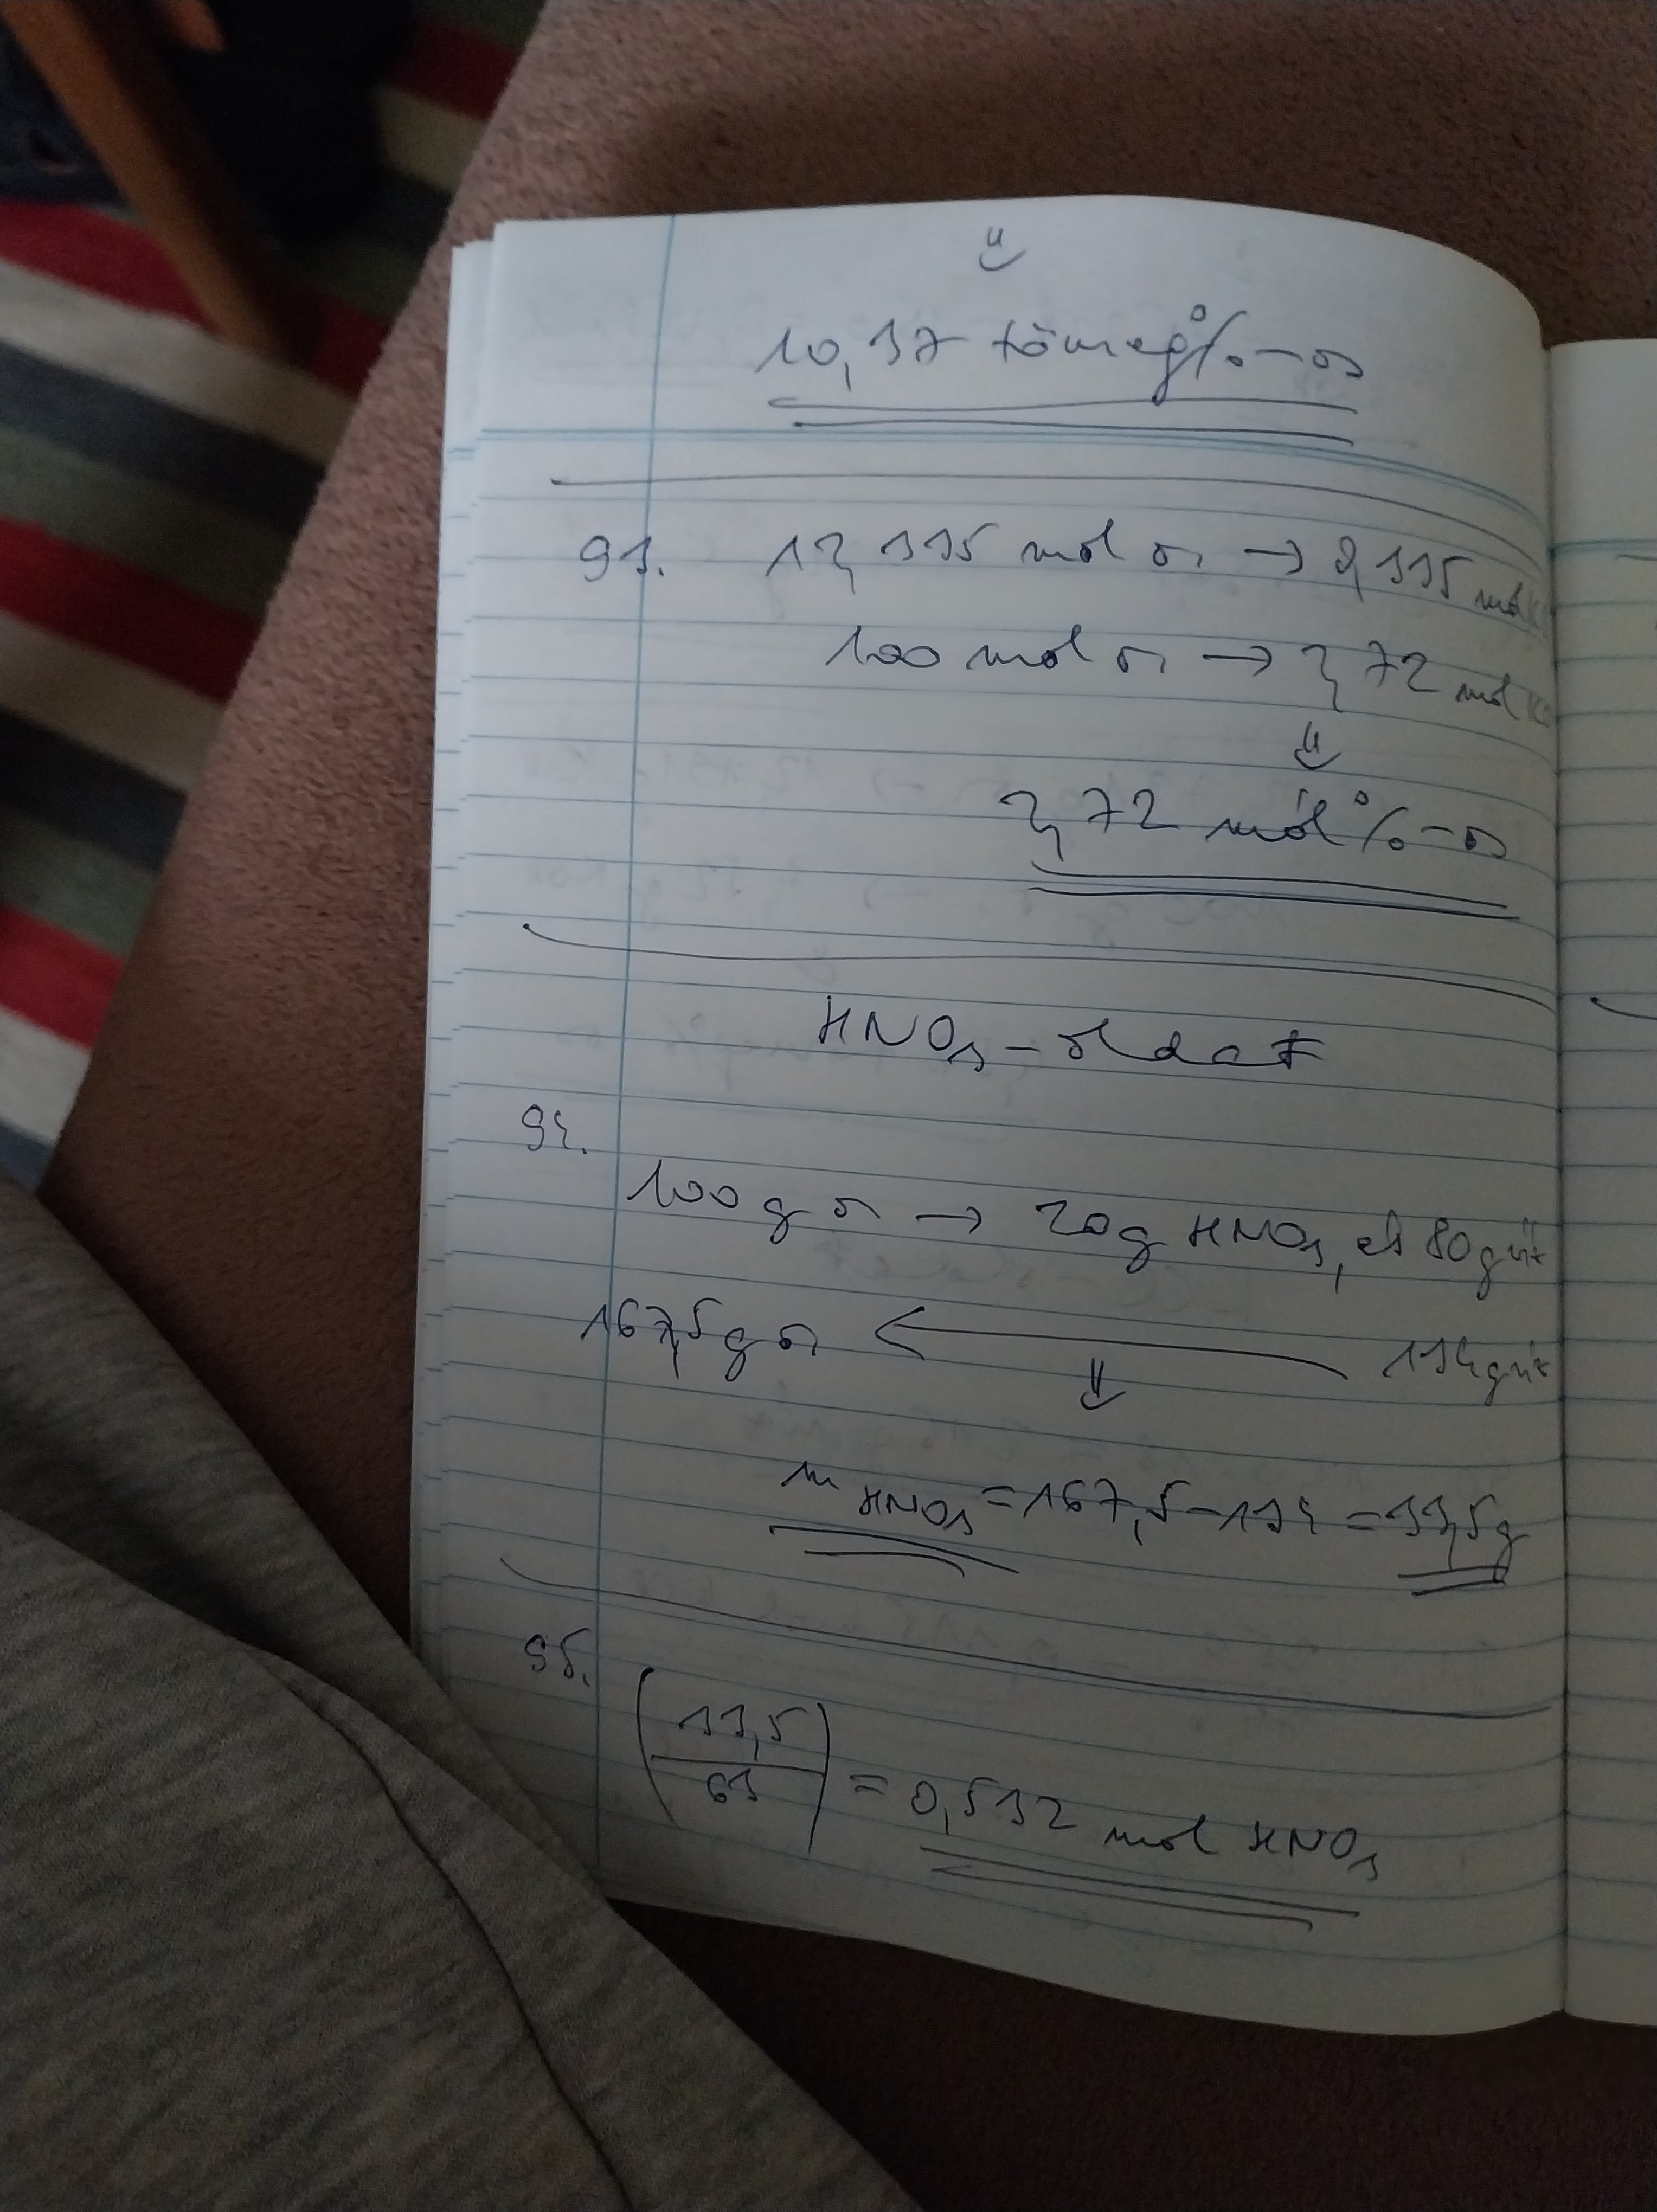 ⇓
10,37 tömeg%-os
93. 12,335 mol o. → 0,335 mol
100 mol o. → 2,72 mol
⇓
2,72 mól%-os
HNO3-oldat
94.
100 g o. → 20g HNO3, és 80g víz
167,5 g o. ← 134g víz
⇓
m HNO3 = 167,5-134 = 33,5g
95.
(33,5/63) = 0,532 mol HNO3